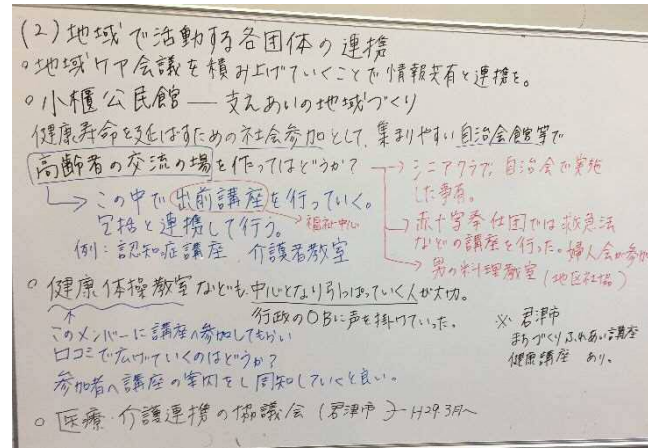 (2) 地域で活動する各団体の連携
○地域ケア会議を積み上げていくことで情報共有と連携を。
○小櫃公民館 ― 支えあいの地域づくり
健康寿命を延ばすための社会参加として、集まりやすい自治会館等で
高齢者の交流の場を作ってはどうか?
→ シニアクラブ、自治会で実施
した事有。
→ この中で出前講座を行っていく。
→ 福祉中心
包括と連携して行う。
例:認知症講座 介護者教室
→ 赤十字奉仕団では救急法
などの講座を行った。婦人会が参加
→ 男の料理教室(地区社協)
○健康体操教室なども、中心となり引っぱっていく人が大切。
行政のOBに声を掛けていった。
このメンバーに講座へ参加してもらい
口コミで広げていくのはどうか?
参加者へ講座の案内をし周知していくと良い。
※ 君津市
まちづくりふれあい講座
健康講座 あり。
○医療・介護連携の協議会(君津市)―H29.3月~